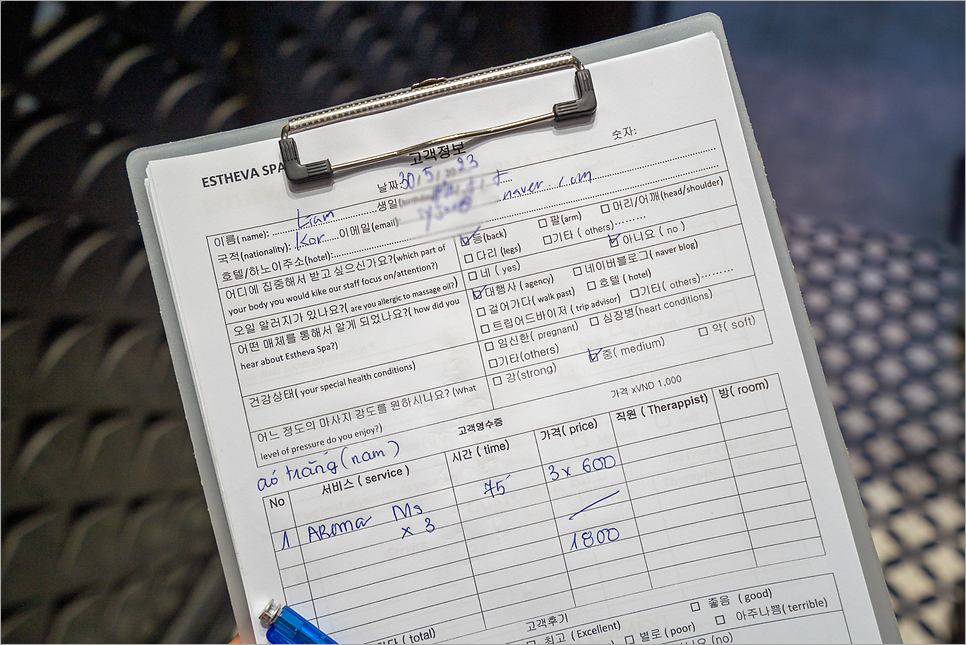 고객정보
ESTHEVA SPA
숫자:
날짜: 30/5/2023
이름( name): Liam 생일
국적(nationality): Kor 이메일(email) naver.com
호텔/하노이주소(hotel):
어디에 집중해서 받고 싶으신가요?(which part of your body you would kike our staff focus on/attention?)
등(back) 팔(arm) 머리/어깨(head/shoulder)
다리 (legs) 기타 ( others)
오일 알러지가 있나요?( are you allergic to massage oil?)
네 ( yes) 아니요 ( no )
어떤 매체를 통해서 알게 되었나요?( how did you hear about Estheva Spa?)
대행사( agency) 네이버블로그( naver blog)
걸어가다( walk past) 호텔 ( hotel)
트립어드바이저 ( trip advisor) 기타( others)
건강상태( your special health conditions)
임신한( pregnant) 심장병(heart conditions)
기타(others)
어느 정도의 마사지 강도를 원하시나요? (What level of pressure do you enjoy?)
강(strong) 중( medium) 약( soft)
고객영수증
가격 xVND 1,000
áo trắng (nam)
No 서비스 ( service ) 시간 ( time) 가격( price) 직원 ( Therappist) 방( room)
1 ARoma Ms x 3 75' 3 x 600
1800
( total)
고객후기
최고 ( Excellent) 좋음 ( good)
별로 ( poor) 아주나쁨( terrible)
(no)